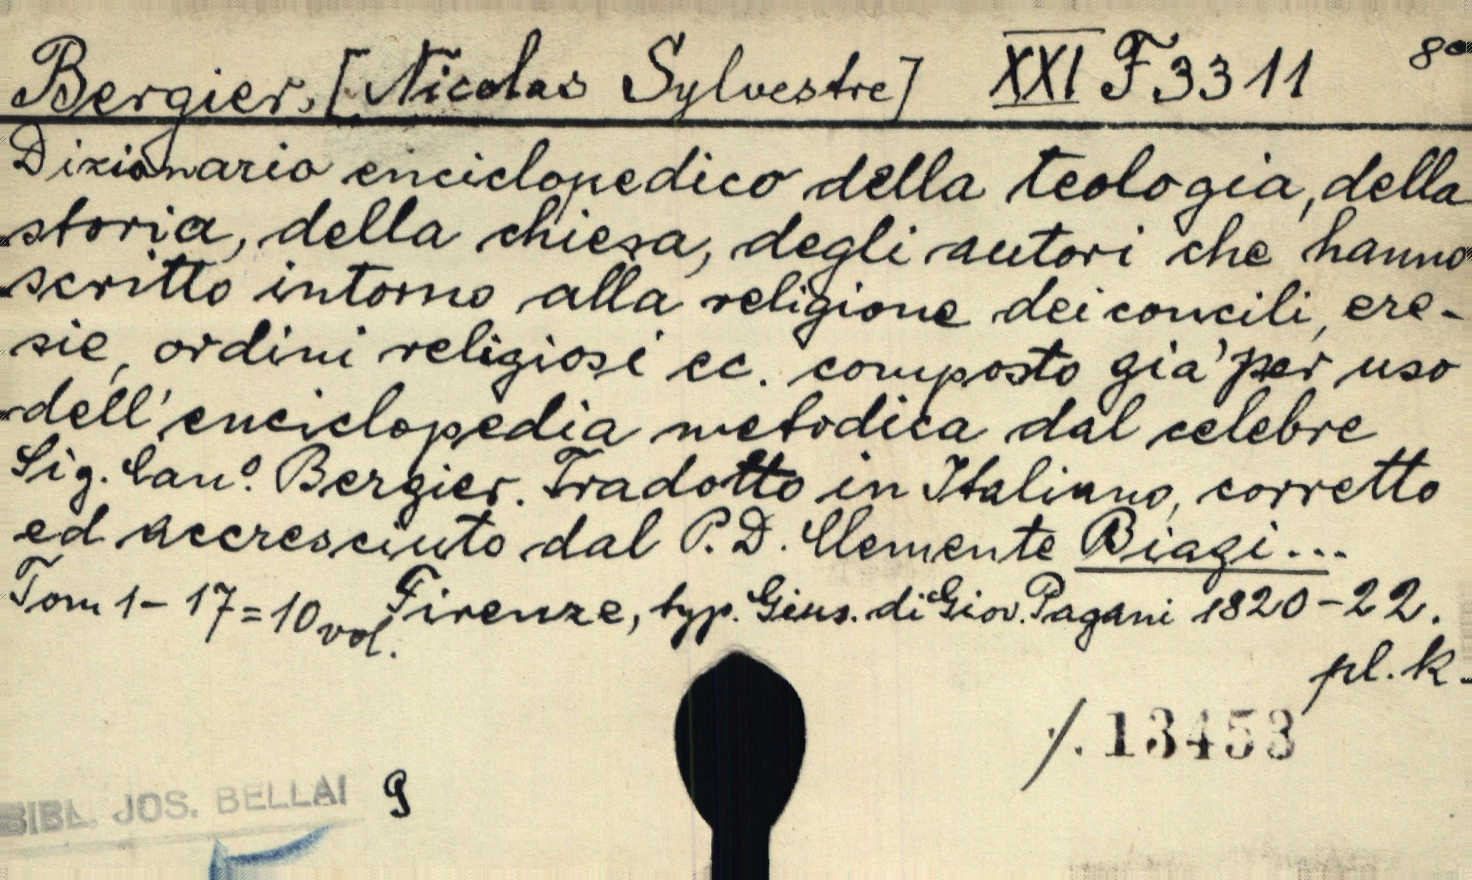 Bergier, [Nicolas Sylvestre] XXI F 3311 8°
Dizionario enciclopedico della teologia, della
storia, della chiesa, degli autori che hanno
scritto intorno alla religione dei concili, ere-
sie, ordini religiosi ec. composto già per uso
dell'enciclopedia metodica dal celebre
Sig. Can.º Bergier. Tradotto in Italiano, corretto
ed accresciuto dal P. D. Clemente Biagi...
Tom 1-17=10 vol. Firenze, typ. Gius. di Giov. Pagani 1820-22.
pl. k.
/. 13453
BIBL. JOS. BELLAI 9